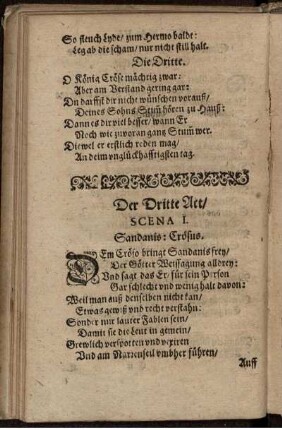 So fleuch Lyde/ zum Hermo balde:
Leg ab die scham/ nur nicht still halt.
Die Dritte.
O König Cröse mächtig zwar:
Aber am Verstand gering gar:
Du darffst dir nicht wünschen vorauß/
Deines Sohns Stim̃ hören zu Hauß:
Dann es dir viel besser/ wann Er
Noch wie zuvoran gantz Stum̃ wer.
Diewel er erstlich reden mag/
An deim vnglückhafftigsten tag.
Der Dritte Act/
SCENA I.
Sandanis: Crösus.
DEm Cröso bringt Sandanis frey/
Der Götter Weissagung alldrey:
Vnd sagt das Er/ für sein Person
Gar schlecht vnd wenig halt davon:
Weil man auß denselben nicht kan/
Etwas gewiß vnd recht verstahn:
Sonder nur lauter Fablen sein/
Damit sie die Leut in gemein/
Grewlich verspotten vnd vexiren
Vnd am Narrenseil vmbher führen/
Auff